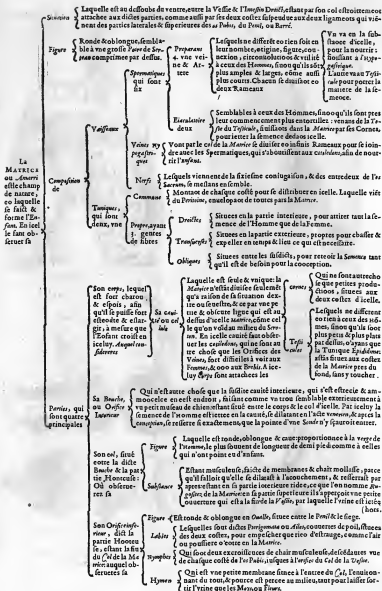 Laquelle est au dessous du ventre, entre la Vessie & l'Intestin Droict, estant par son col estroittement
Situation attachée aux dictes parties, comme aussi par ses deux costez suspendue aux deux ligaments qui vié-
nent des parties laterales & superieures des os Pubis, du Penil, ou Barré.
Figure Ronde & oblongue, sembla-
ble à vne grosse Poire de Ser-
comprimee par dessus.
Spermatiques
qui sont
six
Preparans
4. vne vei-
ne & Ar-
tere
Lesquelles ne different en rien soit en
leur nombre, origine, figure, con-
nexion, circonuolutions & vtilité
à ceux des Hommes, sinon qu'ils sont
plus amples & larges, comme aussi
plus courts. Chacun se diuise en
deux Rameaux
Vn va en la sub-
stance d'icelle,
pour la nourrir:
finissant à l'Hypo-
gastrique.
L'autre va au Testi-
cule pour porter la
matiere de la se-
mence.
Eiaculatoire
deux
Semblables à ceux des Hommes, sinon qu'ils sont pres
leur commencement plus entortillez: venans de la Te-
ste du Testicule, finissans dans la Matrice par ses Cornes,
pour ietter la semence dedans icelle.
Vaisseaux
Veines Hy-
pogastri-
ques
Vont par le col de la Matrice se diuiser en infinis Rameaux pour se ioin-
dre auec les Spermatiques, qui s'aboutissent aux cotyledons, afin de nour-
rir l'enfant.
Nerfs Lesquels viennent de la sixiesme coniugaison, & des entredeux de l'os
Sacrum, se meslans ensemble.
La
MATRICE
ou Amarri
est le champ
de nature,
en laquelle
se faict &
forme l'En-
fant. En icel
le faut ob-
seruer sa
Composition
de
Tuniques,
qui sont
deux, vne
Commune Montant de chaque costé pour se distribuer en icelle. Laquelle viét
du Peritoine, enuelopant de toutes pars la Matrice.
Propre, ayant
3. gentes
de fibres
Droictes Situees en la partie interieure, pour attirer tant la se-
mence de l'Homme que de la Femme.
Transuerses Situees en la partie exterieure, propres pour chasser &
expeller en temps & lieu ce qui est necessaire.
Obliques Situees entre les susdicts, pour retenir la Semence tant
qu'il est de besoin pour la conception.
Son corps, lequel
est fort charnu,
& espois, afin
qu'il se puisse fort
estendre & eslar-
gir, à mesure que
l'Enfant croist en
iceluy. Auquel con-
sidererez
Sa caui-
té ou cel
lule
Laquelle est seule & vnique: la
Matrice n'estant diuisee seulemét
qu'à raison de sa situation dex-
tre ou senestre, & ce par vne pe-
tite & obscure ligne qui est au
dessus d'icelle Matrice, côme cel
le qu'on void au milieu du Scro-
tum. En icelle cauité faut obser-
uer les cotyledons, qui ne sont au
tre chose que les Orifices des
Veines, fort difficiles à voir aux
Femmes, & non aux Brebis. A ice-
luy corps sont attachez les
cornes Qui ne sont autre cho
se que petites produ-
ctions, situees aux
deux costez d'icelle.
Testi
cules
Lesquels ne different
en rien à ceux des Hô-
mes, sinon qu'ils sont
plus petis & plus plats
par dessus, n'ayans que
la Tunique Epididime:
assis situez aux costez
de la Matrice pres du
fond, sans y toucher.
Parties, qui
sont quatre
principales
Sa Bouche,
ou Orifice
Interieur
Qui n'est autre chose que la susdite cauité interieure, qui s'estrecie & am-
moncelee en cest endroit, faisant comme vn trou semblable exterieurement à
vn petit museau de chien estant situé entre le corps & le col d'icelle. Par icelle la
semence de l'Homme est iettee en la cauité, se dilatant en l'acte venerien, & apres la
conception, se resserre si exactement, que la pointe d'vne Sonde n'y sçauroit entrer.
Son col, situé
entre la dicte
Bouche & la par
tie Honteuse:
Où obserue-
rez sa
Figure Laquelle est ronde, oblongue & caue: proportionnee à la verge de
l'Homme, le plus souuent de longueur de demi pied comme à celles
qui n'ont point eu d'enfans.
Substance Estant musculeuse, faicte de membranes & chair mollasse, parce
qu'il falloit qu'elle se dilatast à l'acouchement, & resserrast par
apres: estant en sa partie interieure ridee, ce que l'on nomme Ru-
gositez de la Matrice: en sa partie superieure il s'apperçoit vne petite
ouuerture qui est la sortie de la Vessie, par laquelle l'vrine est iettee
(hors.
Son Orifice infe-
rieur, dict la
partie Honteu
se, estant la fin
du Col de la Ma-
trice: auquel ob-
seruerez sa
Figure Est ronde & oblongue en Ouale, situee entre le Penil & le siege.
Labies Lesquelles sont dictes ou Aisles, couuertes de poil, situees
des deux costez, pour empescher que rien d'estrange, comme l'air
ou poussiere n'entre en la Matrice.
Nymphes Qui sont deux excroissances de chair musculeuse, descédantes vne
de chaque costé de l'os Pubis, iusques à l'orifice du Col de la Vessie.
Hymen Qui est vne petite membrane situee à l'entree du Col, l'enuiron-
nant du tout, & pource est percee au milieu, tant pour laisser sor-
tir l'vrine que les Mois, ou Fleurs.